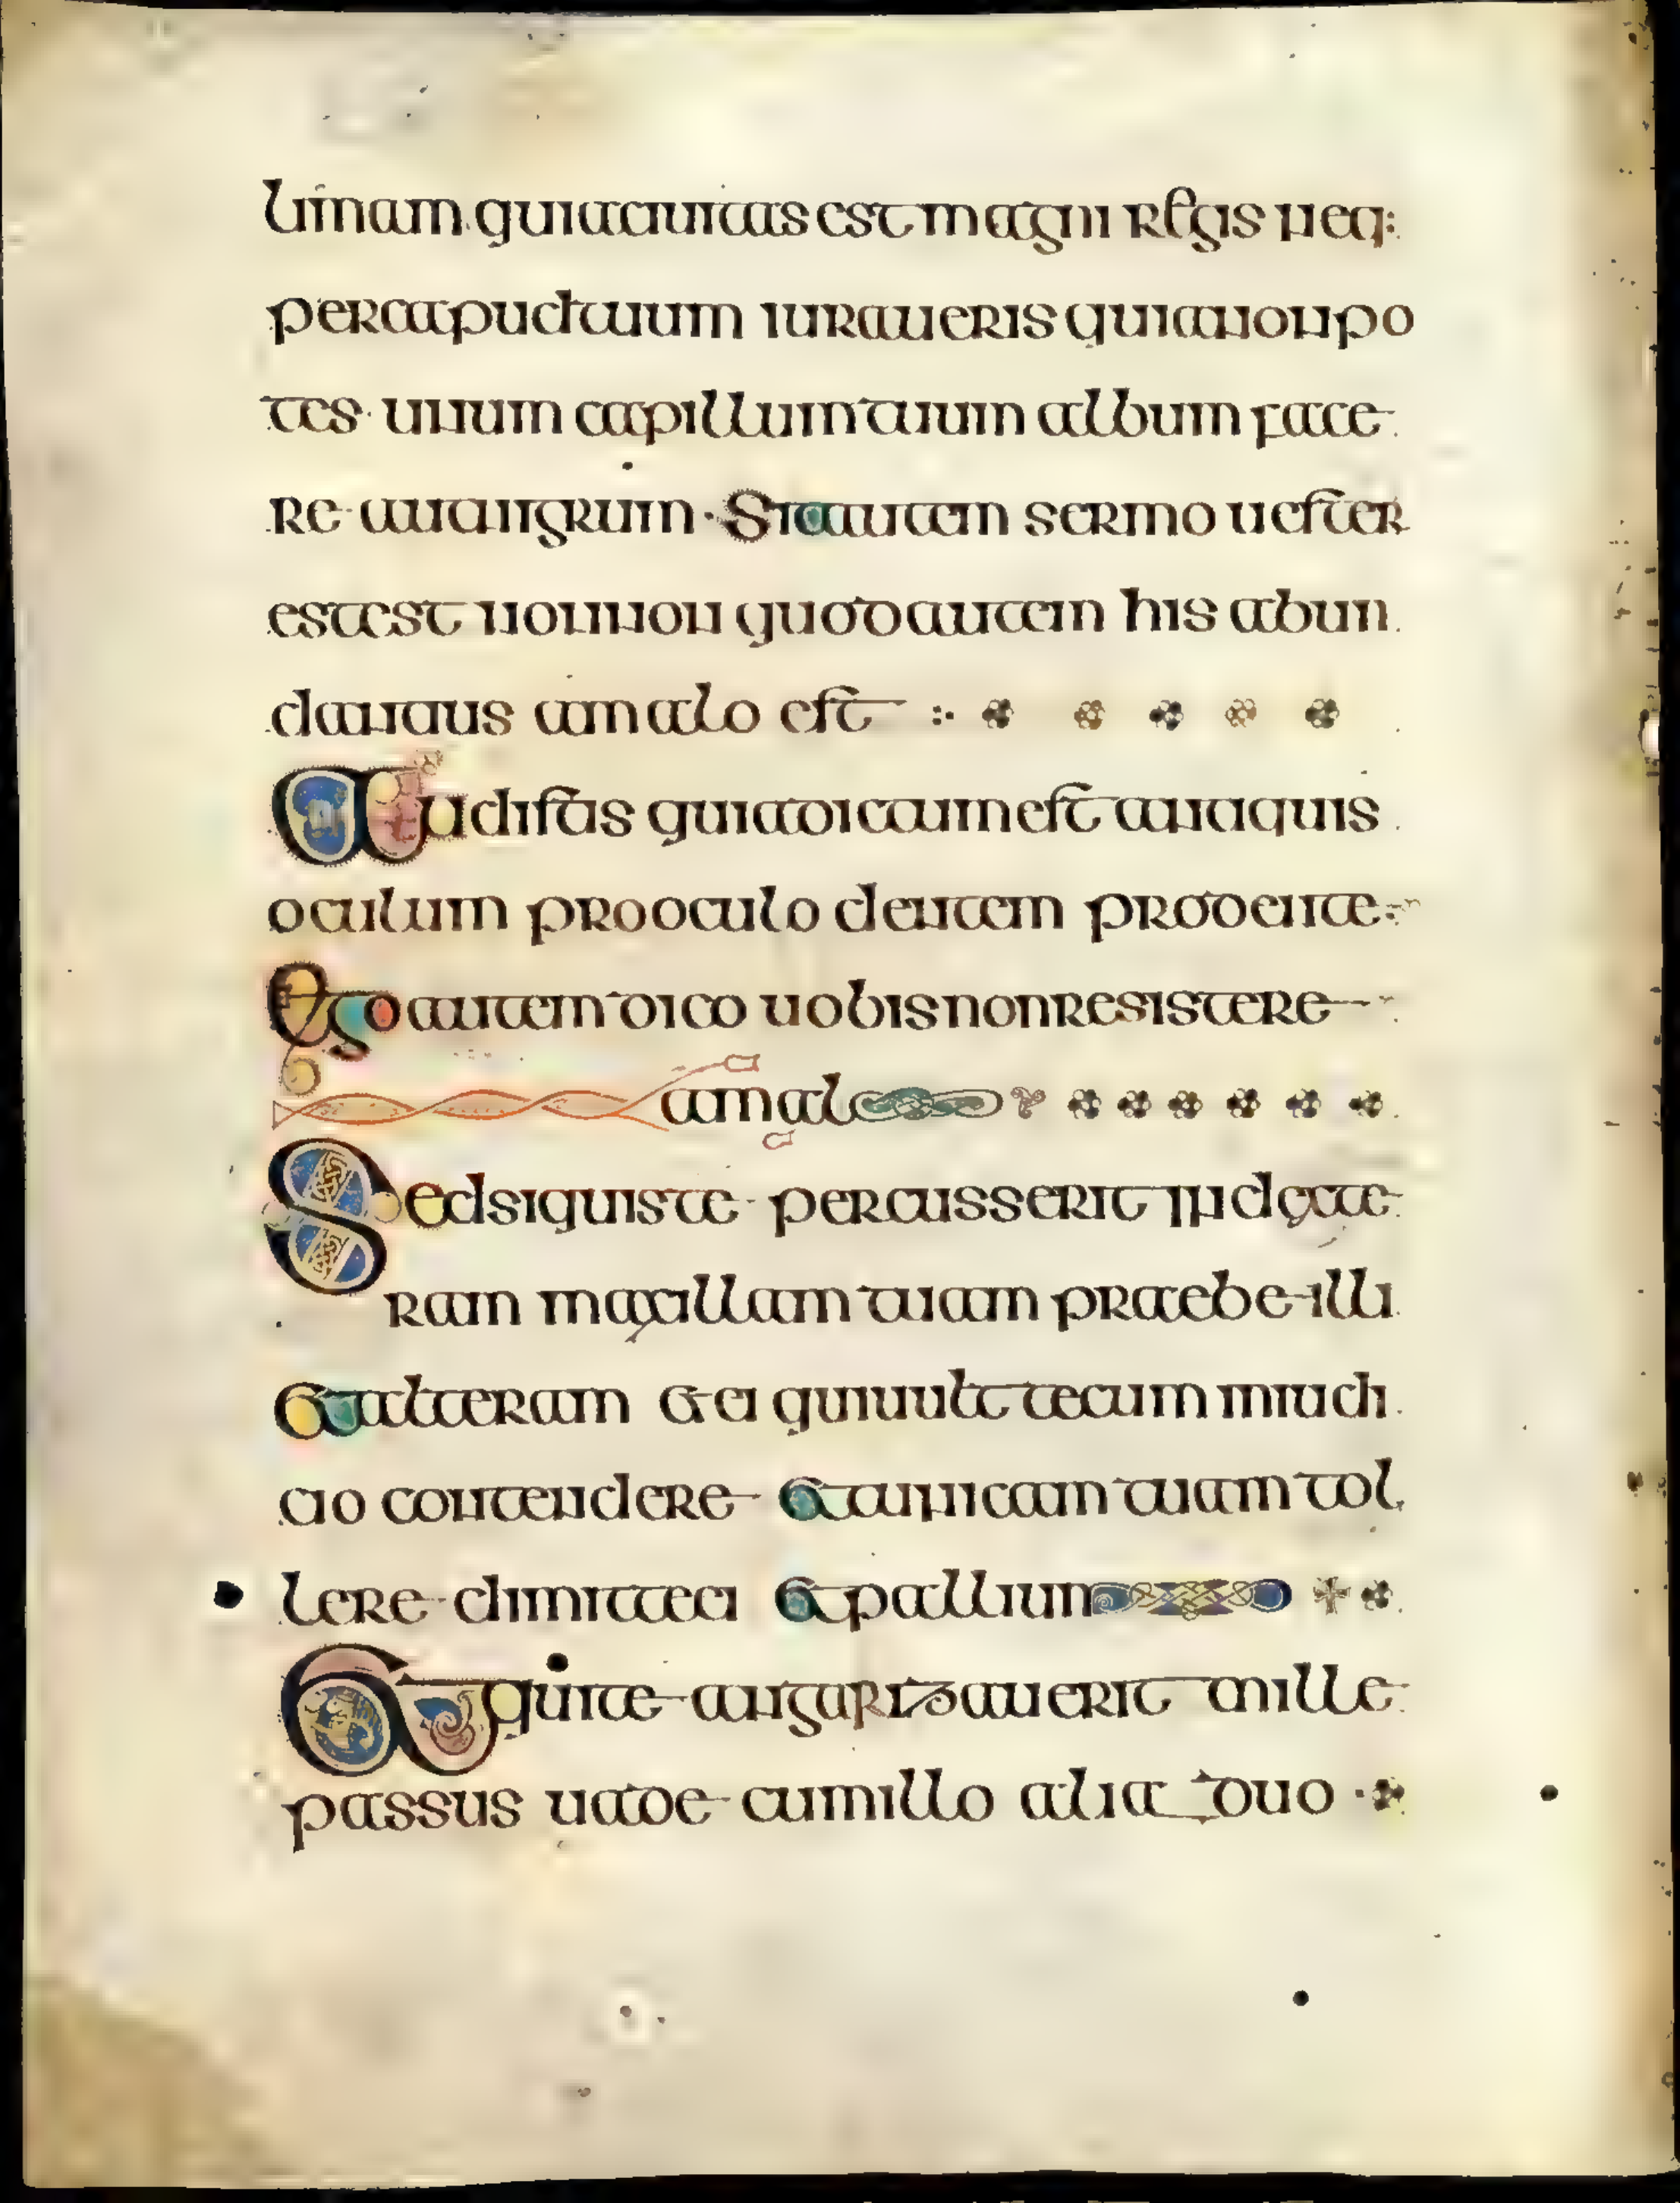 limam quia ciuitas est magni regis neq:
per caput tuum iuraueris quia non po
tes unum capillum tuum album face
re aut nigrum · Sit autem sermo uester
est est non non quod autem his abun
dantius a malo est
Audistis quia dictum est antiquis
oculum pro oculo dentem pro dente
Ego autem dico uobis non resistere
a malo
Sed si quis te percusserit in dexte
ram maxillam tuam praebe illi
et alteram et ei qui uult tecum in iudi
cio contendere et tunicam tuam tol
lere dimitte ei et pallium
Et qui te angarizauerit mille
passus uade cum illo alia duo